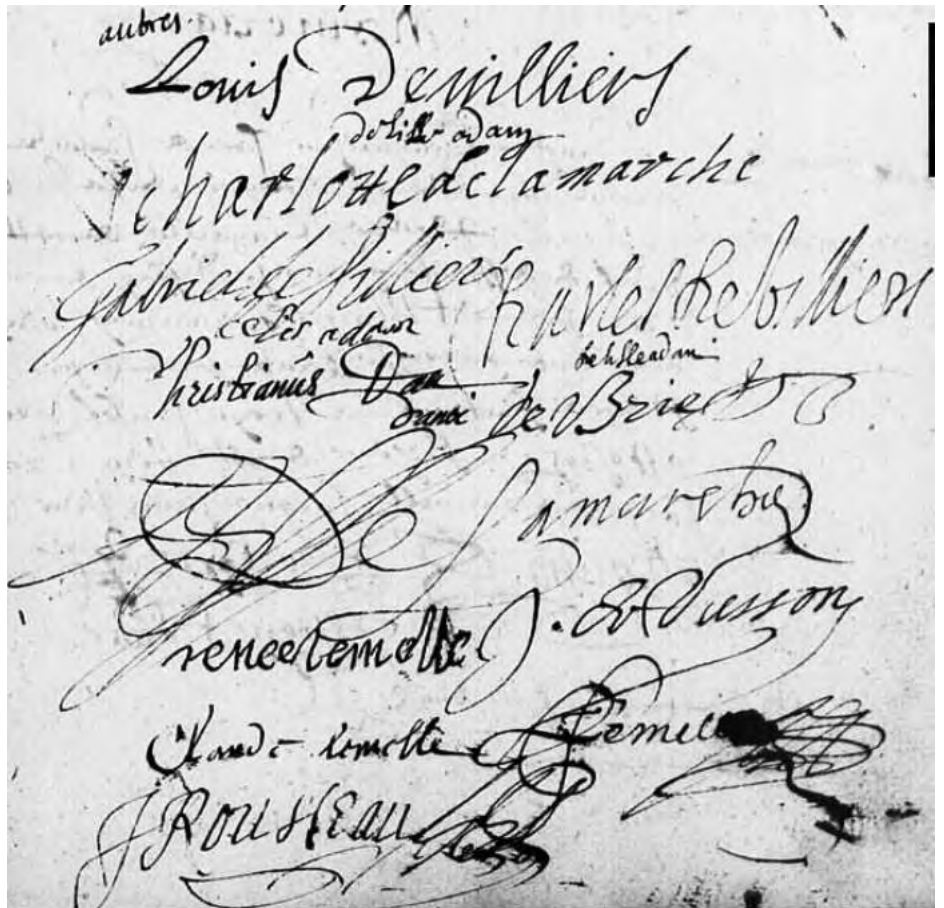 aubres.
Louis Devilliers
delisle adam
charlotte de la marche
Gabriel de Villiers Charles de Villiers
delisleadam
Christianus Van
de Brie
De Lamarche
renee lemelle J. Dusson
Claude lemelle Lemel
J ROUSSEAU